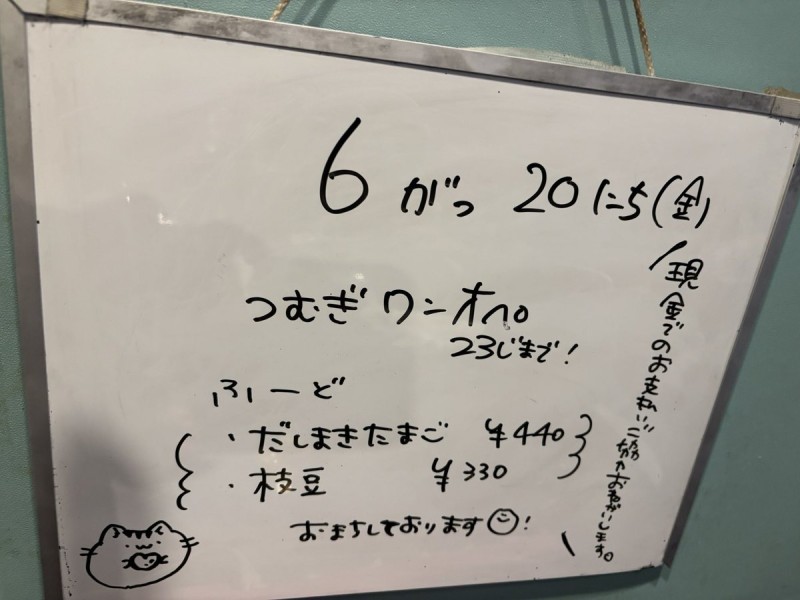 6がつ 20にち(金)
つむぎワンオペ
23じまで!
ふーど
・だしまきたまご ¥440
・枝豆 ¥330
おまちしております!
現金でのお支払いご協力おねがいします。